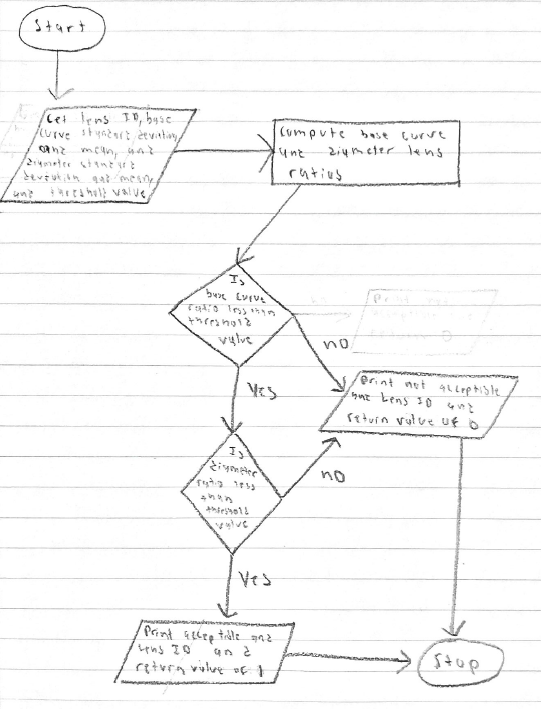 Start
Get lens ID, base
curve standard deviation
and mean, and
diameter standard
deviation and mean,
and threshold value
compute base curve
and diameter lens
ratios
Is
base curve
ratio less than
threshold
value
no
Print not acceptible
and Lens ID and
return value of 0
yes
Is
diameter
ratio less
than
threshold
value
no
yes
Print acceptible and
Lens ID and
return value of 1
Stop